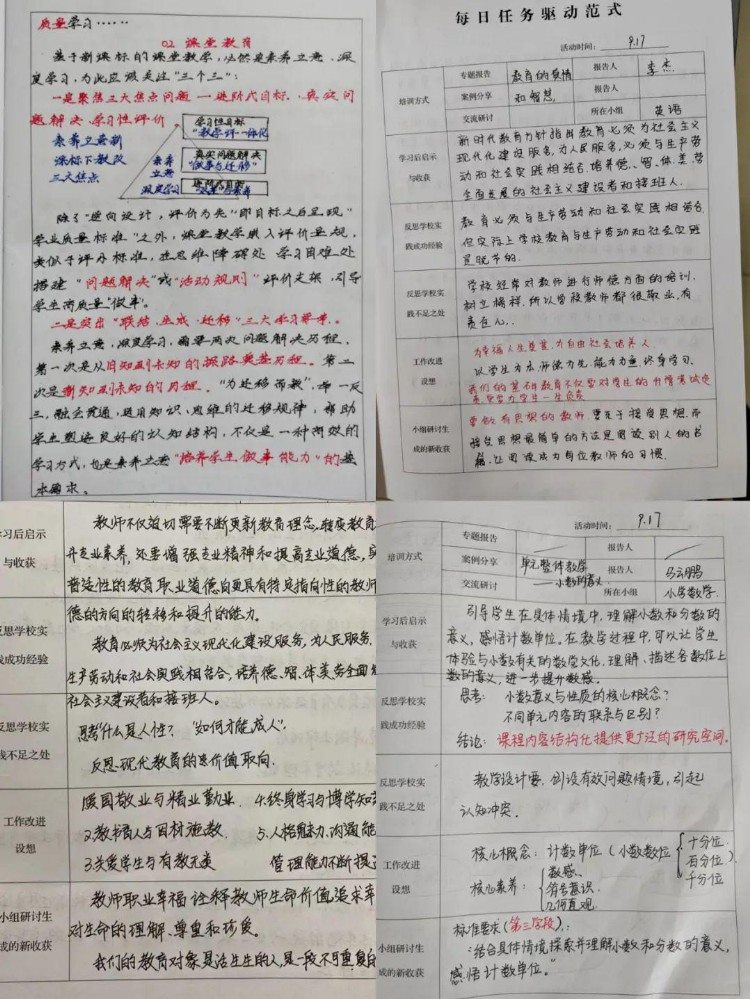 质量学习……
02 课堂教育
基于新课标的课堂教学,必然是素养立意、深
度学习,为此应该关注"三个三":
一是聚焦三大焦点问题——进阶式目标、真实问
题解决、学习性评价
素养立意新
课标下教改
三大焦点
素养
立意
深度学习
学习性目标
"教学评一体化
真实问题解决
"做事与迁移"
除了"逆向设计,评价为先"即目标之后呈现"
学业质量标准"之外,课堂教学嵌入评价量规,
类似于评分标准,在思维障碍处 学习困难处
搭建"问题解决"或"活动规则"评价支架,引导
学生高质量"做事"。
二是突出"联结、生成、迁移"三大学习算子。
素养立意,深度学习,需要两次问题解决历程。
第一次是从旧知到未知的抓路奠基历程。第二
次是新知到未知的历程。"为迁移而教",举一反
三,融会贯通,运用知识、思维的迁移规律,帮助
学生塑造良好的认知结构,不仅是一种高效的
学习方式,也是素养立意"培养学生做事能力"的基
本要求。
每日任务驱动范式
活动时间: 9.17
培训方式
专题报告
教育的真情
报告人
李杰
案例分享
和智慧
报告人
交流研讨
所在小组
英语
学习后启示
与收获
新时代教育方针指出教育必须为社会主义
现代化建设服务,为人民服务,必须与生产劳
动和社会实践相结合,培养德、智、体、美、劳
全面发展的社会主义建设者和接班人。
反思学校实
践成功经验
教育必须与生产劳动和社会实践相结合
但实际上学校教育与生产劳动和社会实践
是脱节的.
反思学校实
践不足之处
学校经常对教师进行师德方面的培训,
树立榜样,所以学校教师都很敬业,有
责任心.
工作改进
设想
为幸福人生奠基,为自由社会培养人.
以学生为本 师德为先 能力为重 终身学习.
我们的基础教育不仅要对学生的升情考试负
责,更要为学生一生负责
小组研讨生
成的新收获
要做有思想的教师,要先于接受思想.而
接受思想最简单的方法是阅读别人的书
籍.让阅读成为每位教师的习惯.
学习后启示
与收获
教师不仅迫切需要不断更新教育理念,强度教育
升专业素养,还要增强专业精神和提高专业道德,实
普适性的教育职业道德向更具有特定指向性的教师
德的方向的转移和提升的能力。
反思学校实
践成功经验
教育必须为社会主义现代化建设服务,为人民服务,
生产劳动和社会实践相结合,培养德、智、体美劳全面
社会主义建设者和接班人。
反思学校实
践不足之处
思考"什么是人性?"如何才能成人".
反思现代教育的主价值取向.
工作改进
设想
爱国敬业与精业勤业. 4.终身学习与博学知
2.教书育人与因材施教 5.人格魅力,沟通能
3.关爱学生与有教无类 管理能力不断提
小组研讨生
成的新收获
教师职业幸福诠释教师生命价值,追求幸
对生命的理解、尊重和珍爱。
我们的教育对象是活生生的人,是一段不可重复的
活动时间: 9.17
培训方式
专题报告
报告人
案例分享
单元整体教学
——小数的意义
报告人
马云鹏
交流研讨
所在小组
小学数学.
学习后启示
与收获
引导学生在具体情境中,理解小数和分数的
意义,感悟计数单位。在教学过程中,可以让学生
体验与小数有关的数学文化,理解、描述各数位上
数的意义,进一步提升数感。
反思学校实
践成功经验
思考: 小数意义与性质的核心概念?
不同单元内容的联系与区别?
结论: 课程内容结构化提供更广泛的研究空间.
反思学校实
践不足之处
教学设计要,创设有效问题情境,引起
认知冲突.
工作改进
设想
核心概念: 计数单位(小数数位 十分位
百分位
千分位
核心素养: 数感.
符号意识.
几何直观.
小组研讨生
成的新收获
标准要求(第三学段):
"结合具体情境探索并理解小数和分数的意义,
感悟计数单位。"